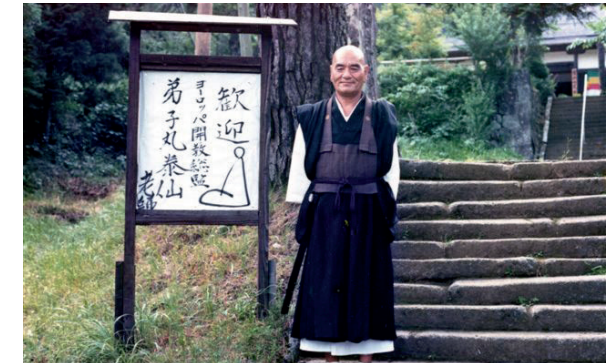 歓迎
ヨーロッパ開教総監
弟子丸泰仙
老師